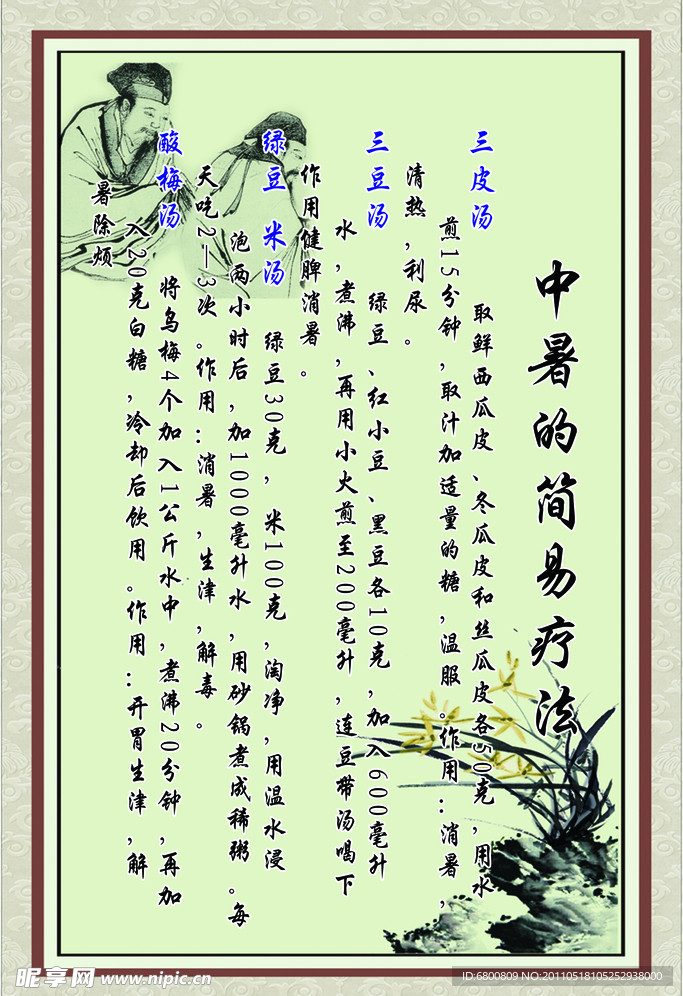 中暑的简易疗法
三皮汤 取鲜西瓜皮、冬瓜皮和丝瓜皮各50克,用水
煎15分钟,取汁加适量的糖,温服。作用:消暑,
清热,利尿。
三豆汤 绿豆、红小豆、黑豆各10克,加入600毫升
水,煮沸,再用小火煎至200毫升,连豆带汤喝下
作用健脾消暑。
绿豆 米汤 绿豆30克,米100克,淘净,用温水浸
泡两小时后,加1000毫升水,用砂锅煮成稀粥。每
天吃2—3次。作用:消暑,生津,解毒。
酸梅汤 将乌梅4个加入1公斤水中,煮沸20分钟,再加
入20克白糖,冷却后饮用。作用:开胃生津,解
暑除烦
昵享网 www.nipic.cn
ID:6800809 NO:20110518105252938000